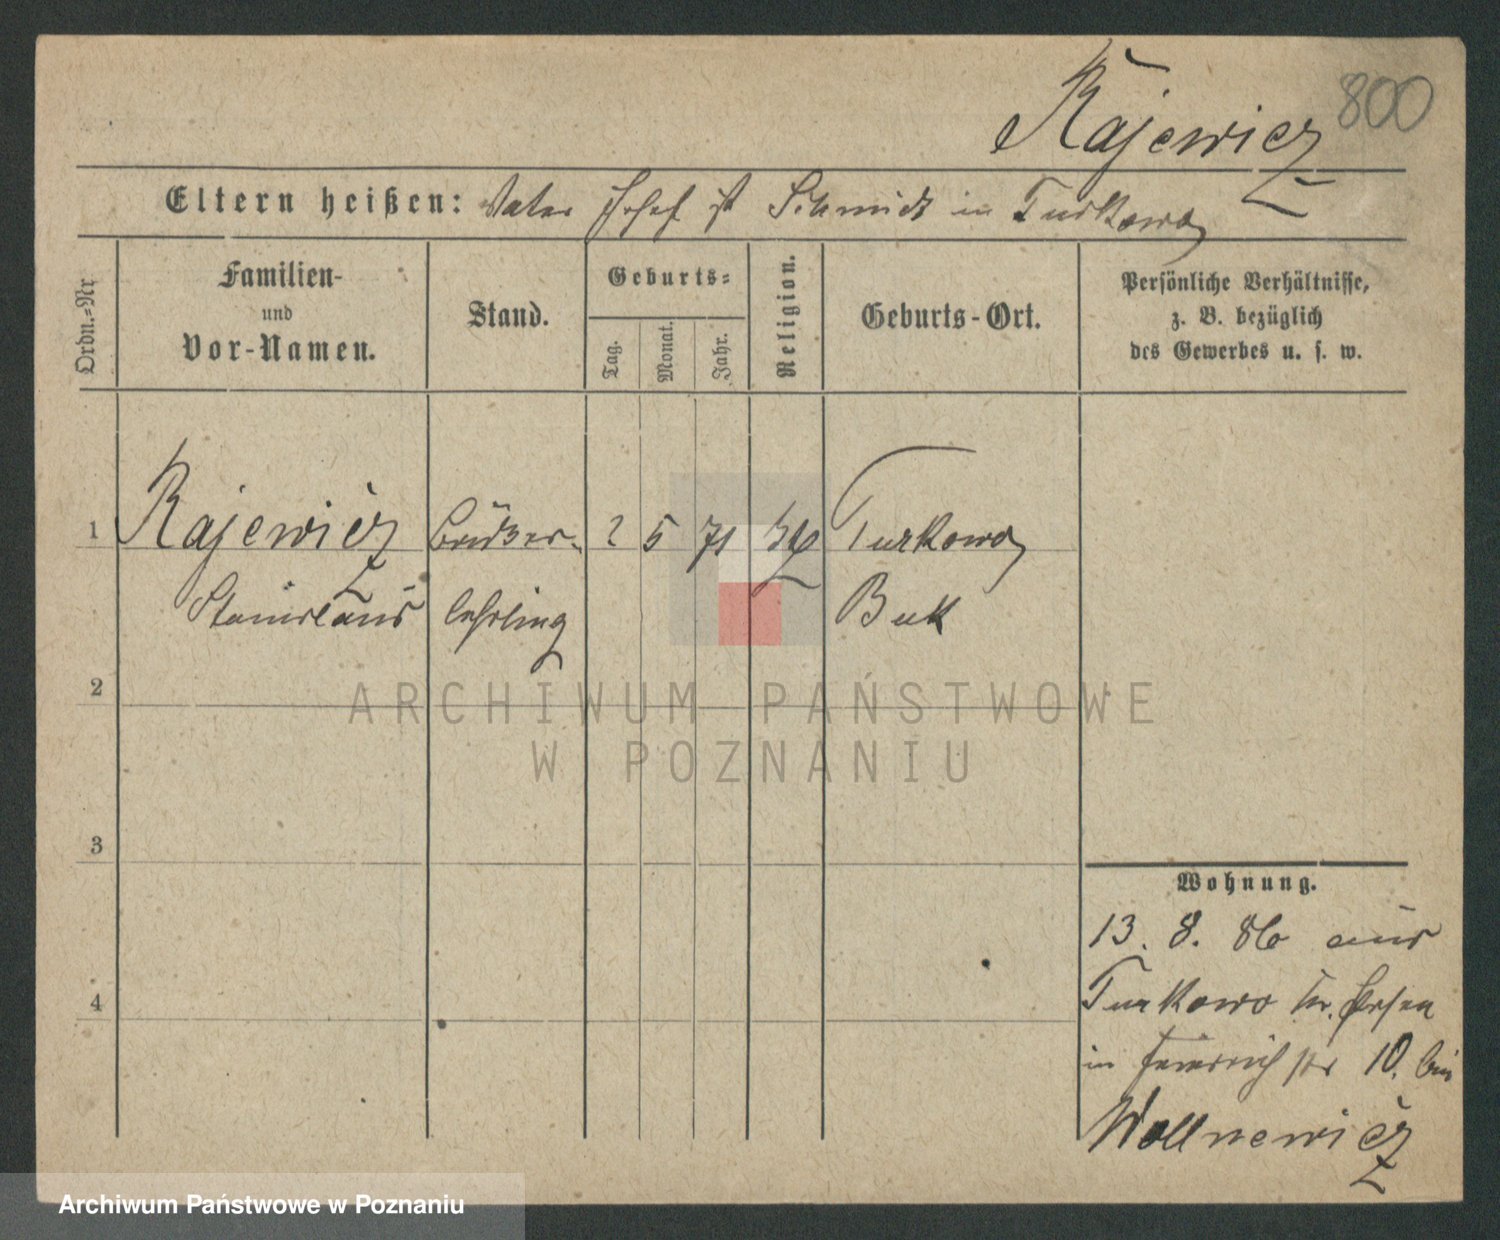 800
Rajewicz
Eltern heißen: Vater Josef ist Schmidt in Turkowo
Ordn.-Nr
Familien-
und
Vor-Namen.
Stand.
Geburts-
Tag.
Monat.
Jahr.
Religion.
Geburts-Ort.
Persönliche Verhältnisse,
z. B. bezüglich
des Gewerbes u. s. w.
1 Rajewicz 2 5 71 Turkowo
Stanislaus lehrling Buk
2
3
4
Wohnung.
13. 8. 86 aus
Turkowo Kr.
in 10. bei
Wollnewicz
ARCHIWUM PAŃSTWOWE
W POZNANIU
Archiwum Państwowe w Poznaniu